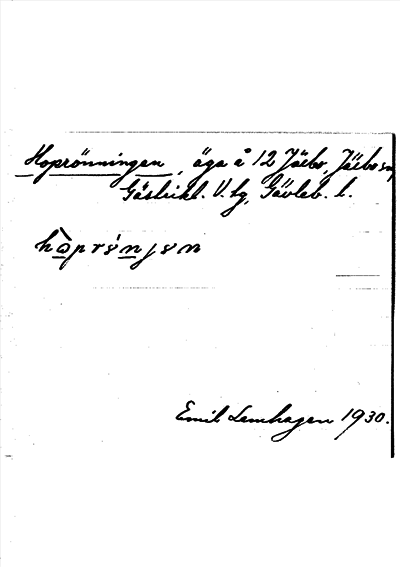 Hoprönningen, äga å 12 Järbo, Järbo sn,
Gästrikl. V. tg, Gävleb. l.
Emil Lemhagen 1930.